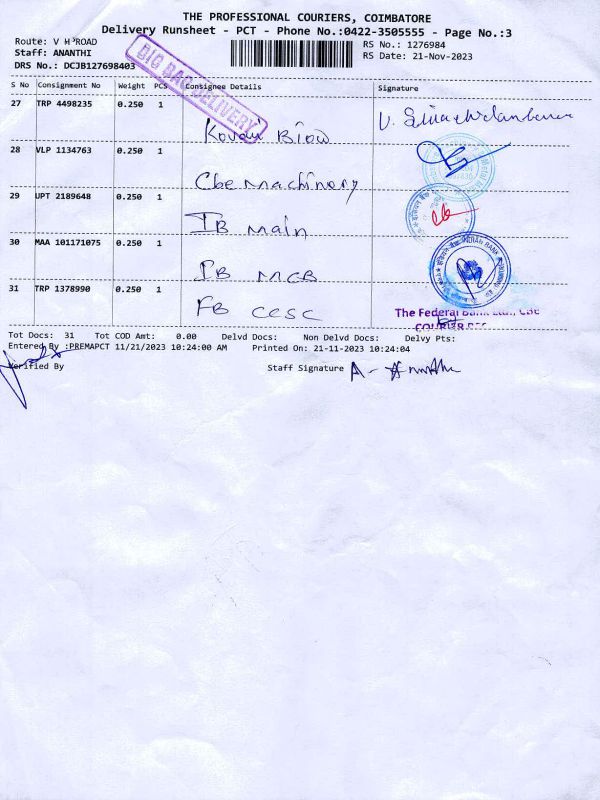 THE PROFESSIONAL COURIERS, COIMBATORE
Delivery Runsheet - PCT - Phone No.:0422-3505555 - Page No.:3
Route: V H ROAD
Staff: ANANTHI
DRS No.: DCJB127698403
RS No.: 1276984
RS Date: 21-Nov-2023
BIG BAG DELIVERY
S No Consignment No Weight PCS Consignee Details Signature
27 TRP 4498235 0.250 1
28 VLP 1134763 0.250 1
Cbe Machinery
29 UPT 2189648 0.250 1
IB Main
30 MAA 101171075 0.250 1
IB MCB
31 TRP 1378990 0.250 1
FB CCSC
INDIAN BANK
The Federal Bank Ltd., CBE
Tot Docs: 31 Tot COD Amt: 0.00 Delvd Docs: Non Delvd Docs: Delvy Pts:
Entered By :PREMAPCT 11/21/2023 10:24:00 AM Printed On: 21-11-2023 10:24:04
Verified By
Staff Signature A- Ananthi